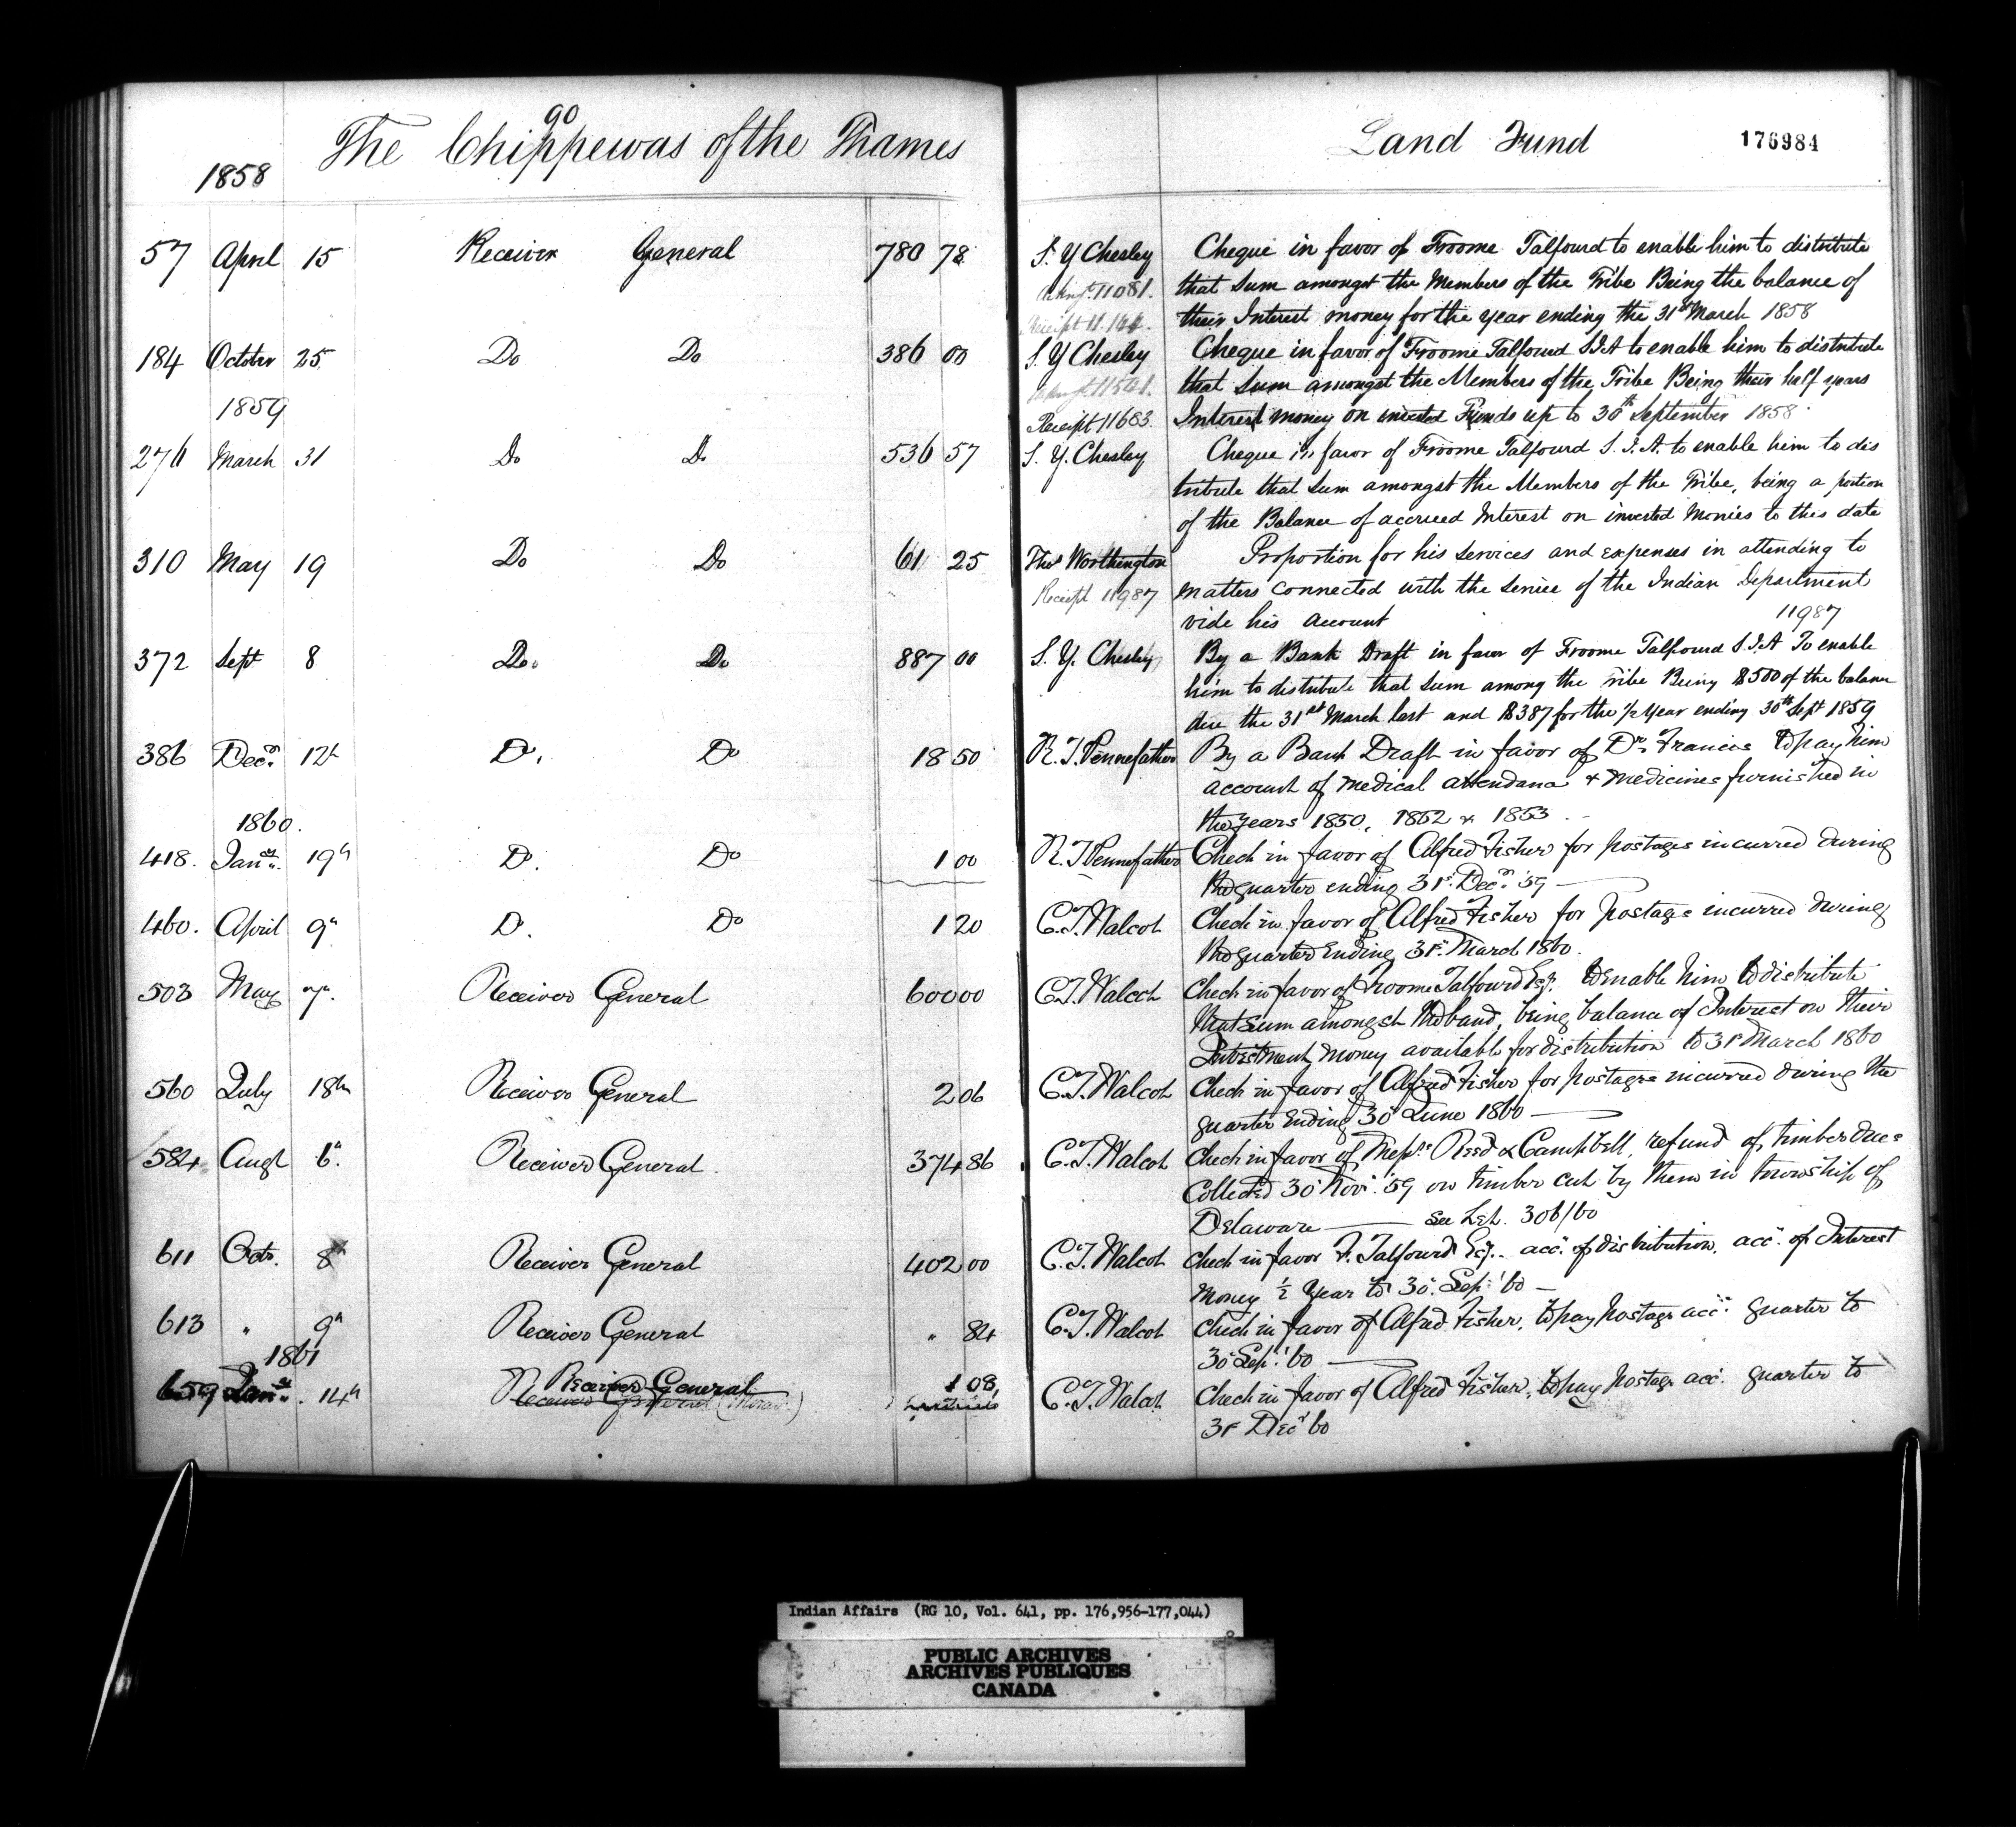 90
The Chippewas of the Thames
Land Fund
176984
1858
57 April 15 Receiver General 780 78 S. Y Chesley Cheque in favor of Froome Talfourd to enable him to distribute
11081. that Sum amongst the Members of the Tribe Being the balance of
Receipt 11.144. their Interest money for the year ending the 31st March 1858
184 October 25 Do Do 386 00 S. Y Chesley Cheque in favor of Froome Talfourd S.I.A to enable him to distribute
that Sum amongst the Members of the Tribe Being their half years
1859
Receipt 11683. Interest money on invested Funds up to 30th September 1858
276 March 31 Do Do 536 57 S. Y. Chesley Cheque in favor of Froome Talfourd S. I. A. to enable him to dis
tribute that Sum amongst the Members of the Tribe, being a portion
of the Balance of accrued Interest on invested Monies to this date
310 May 19 Do Do 61 25 Thos Worthington Proportion for his services and expenses in attending to
Receipt 11987 matters connected with the service of the Indian Department
vide his account 11987
372 Sept 8 Do. Do 887 00 S. Y. Chesley By a Bank Draft in favor of Froome Talfourd S.I.A To enable
him to distribute that Sum among the Tribe Being $500 of the balance
due the 31st March last and $387 for the 1/2 Year ending 30th Sept 1859
386 Decr. 12h Do. Do 18 50 R. T. Pennefather By a Bank Draft in favor of Dr. Francis to pay him
account of medical attendance & medicines furnished in
the years 1850, 1852 & 1853
1860.
418. Jany. 19h Do. Do 1 00 R. T Pennefather Check in favor of Alfred Fisher for postages incurred during
the quarter ending 31st. Decr '59
460. April 9h Do. Do 1 20 C. T. Walcot Check in favor of Alfred Fisher for postage incurred during
the quarter Ending 31st. March 1860.
503 May 7h. Receiver General 600 00 C. T. Walcot Check in favor of Froome Talfourd Esq. to Enable him to distribute
that sum amongst the band, being balance of Interest on their
Investment money available for distribution to 31st March 1860
560 July 18th Receiver General 2 06 C. T. Walcot Check in favor of Alfred Fisher for postages incurred during the
quarter Ending 30 June 1860
584 Augt 6h. Receiver General 374 86 C. T. Walcot Check in favor of Messrs Reed & Campbell, refund of timber dues
Collected 30 Novr. '59 on timber cut by them in township of
Delaware see Let. 306/60
611 Octr. 8h Receiver General 402 00 C. T. Walcot Check in favor F. Talfourd Esq. acct. of distribution, acct. of Interest
Money 1/2 Year to 30. Sep. '60
613 " 9h Receiver General " 84 C. T. Walcot Check in favor of Alfred Fisher, to pay Postage acct. quarter to
30 Sep. '60
1861
659 Jany. 14h Receiver General 1 08 C. T. Walcot Check in favor of Alfred Fisher, to pay postage acct. quarter to
31st Decr 60
Indian Affairs (RG 10, Vol. 641, pp. 176,956-177,044)
PUBLIC ARCHIVES
ARCHIVES PUBLIQUES
CANADA